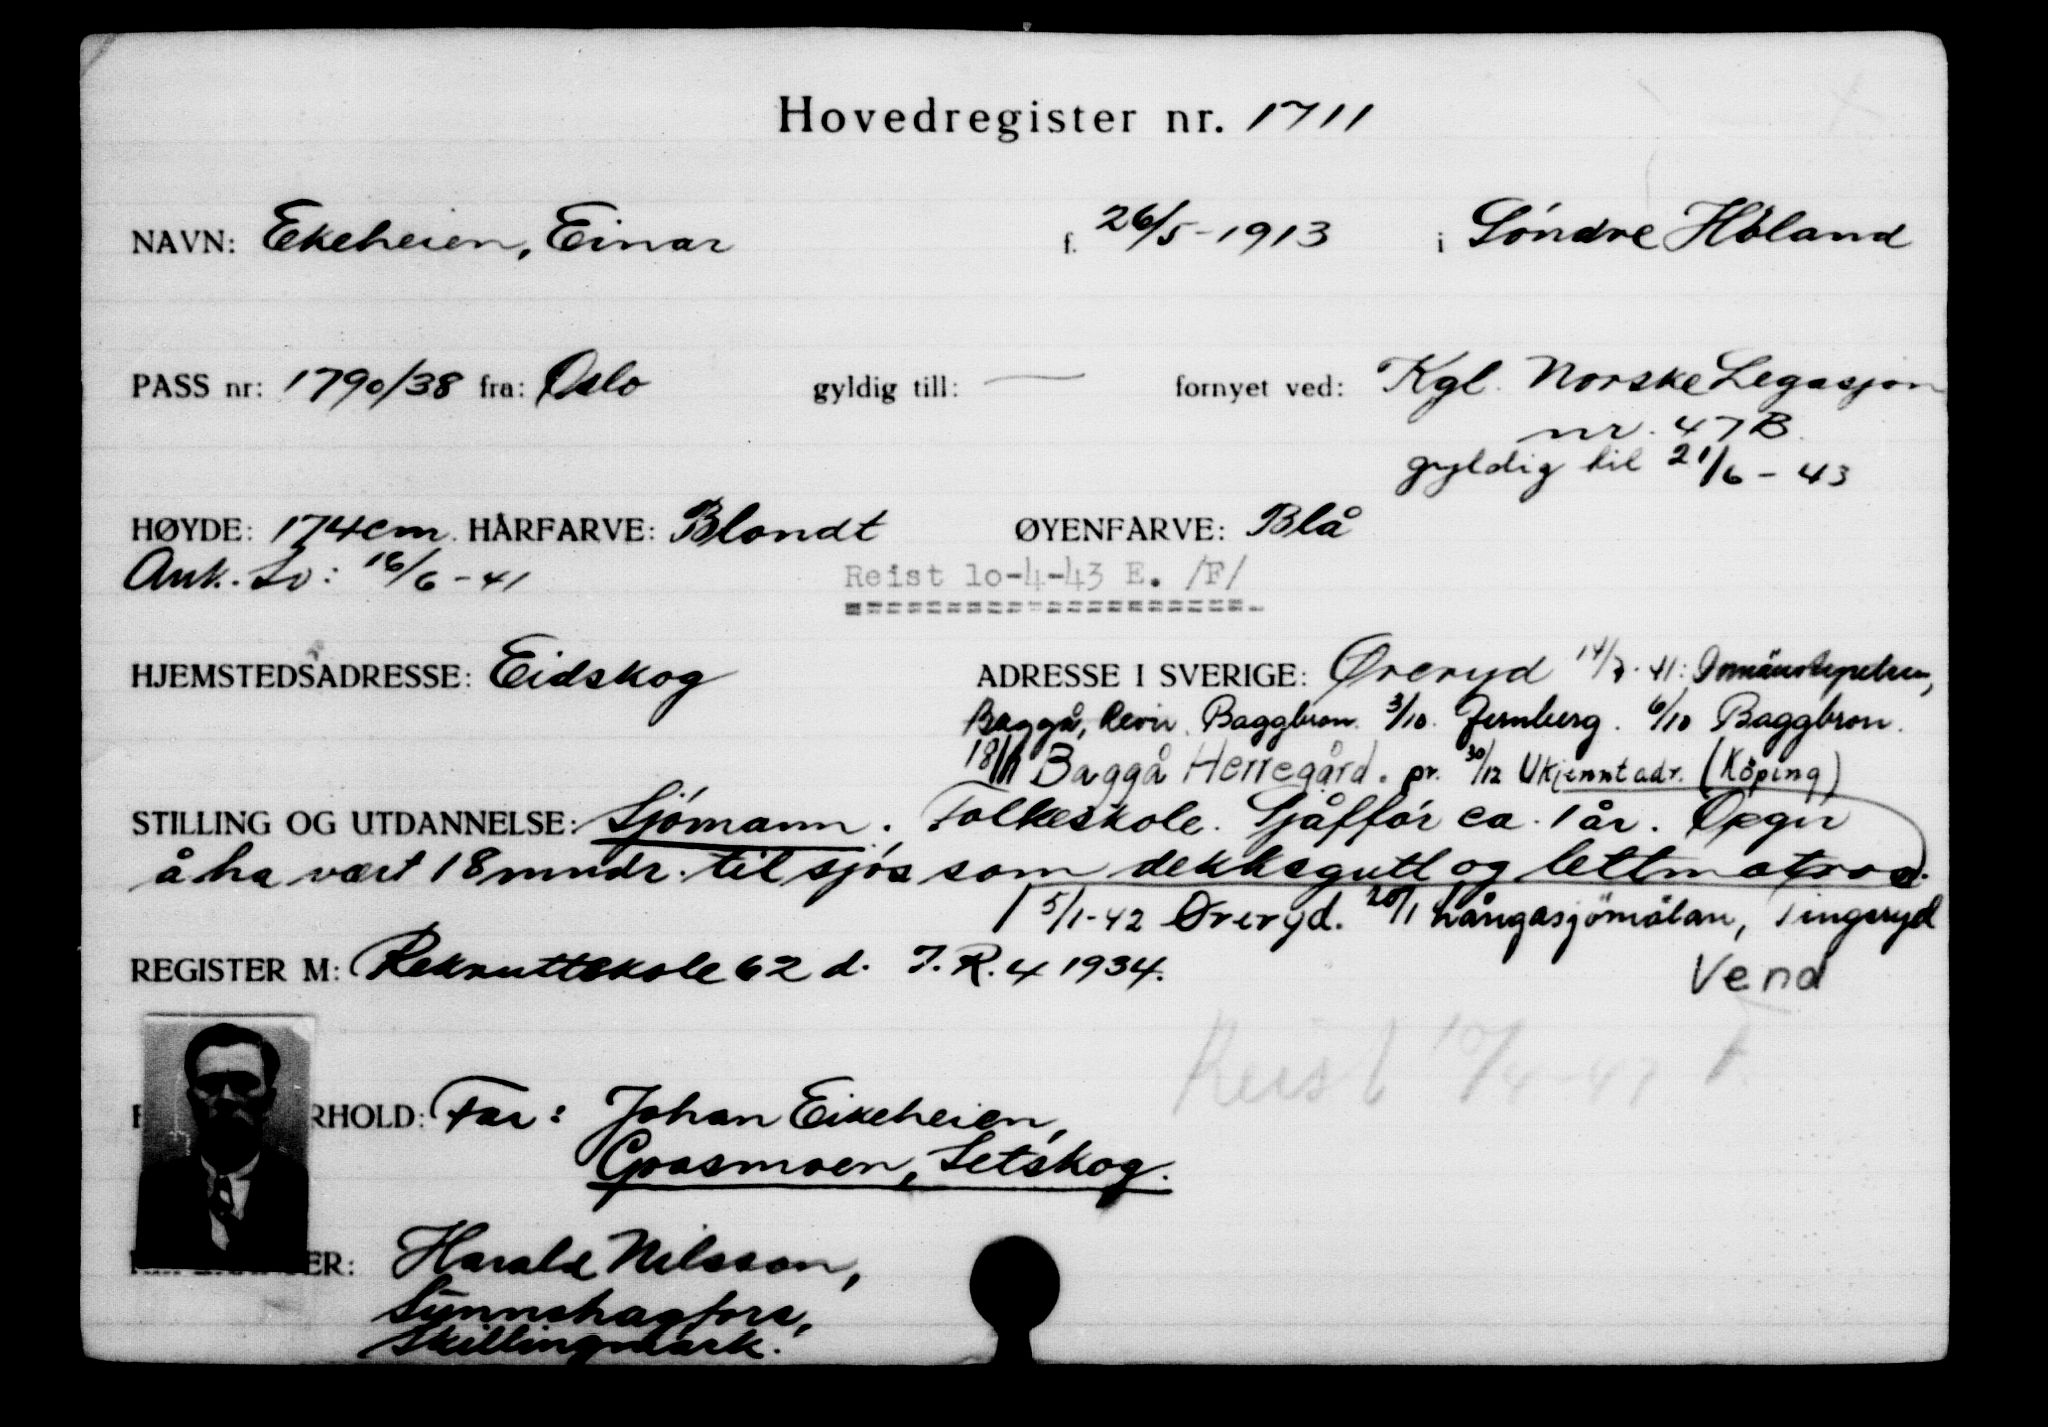 Hovedregister nr. 1711
NAVN: Ekeheien, Einar f. 26/5-1913 i Söndre Höland
PASS nr: 1790/38 fra: Oslo gyldig till: — fornyet ved: Kgl. Norske Legasjon
nr. 47B.
gyldig til 21/6-43
HØYDE: 174cm. HÅRFARVE: Blondt ØYENFARVE: Blå
Ank. Sv: 16/6-41 Reist 1o-4-43 E. /F/
HJEMSTEDSADRESSE: Eidskog ADRESSE I SVERIGE: Øreryd 14/7-41: Domänstyrelsen,
Baggå, Revir. Baggbron. 3/10. Jernberg. 6/10 Baggbron.
18/11 Baggå Herregård. pr. 30/12 Ukjennt adr. (Köping)
STILLING OG UTDANNELSE: Sjömann. Folkeskole. Sjåffór ca. 1 år. Opgir
å ha vært 18 mndr. til sjøs som dekksgutt og lettmatros.
5/1-42 Øreryd. 20/1 Långasjömåla, Tingsryd
REGISTER M: Rekruttskole 62 d. I.R. 4 1934. Vend
Reist 10/4-43 F.
RHOLD: Far: Johan Eikeheien,
Grasmoen, Setskog.
ER: Harald Nilsson,
Skillingmark.